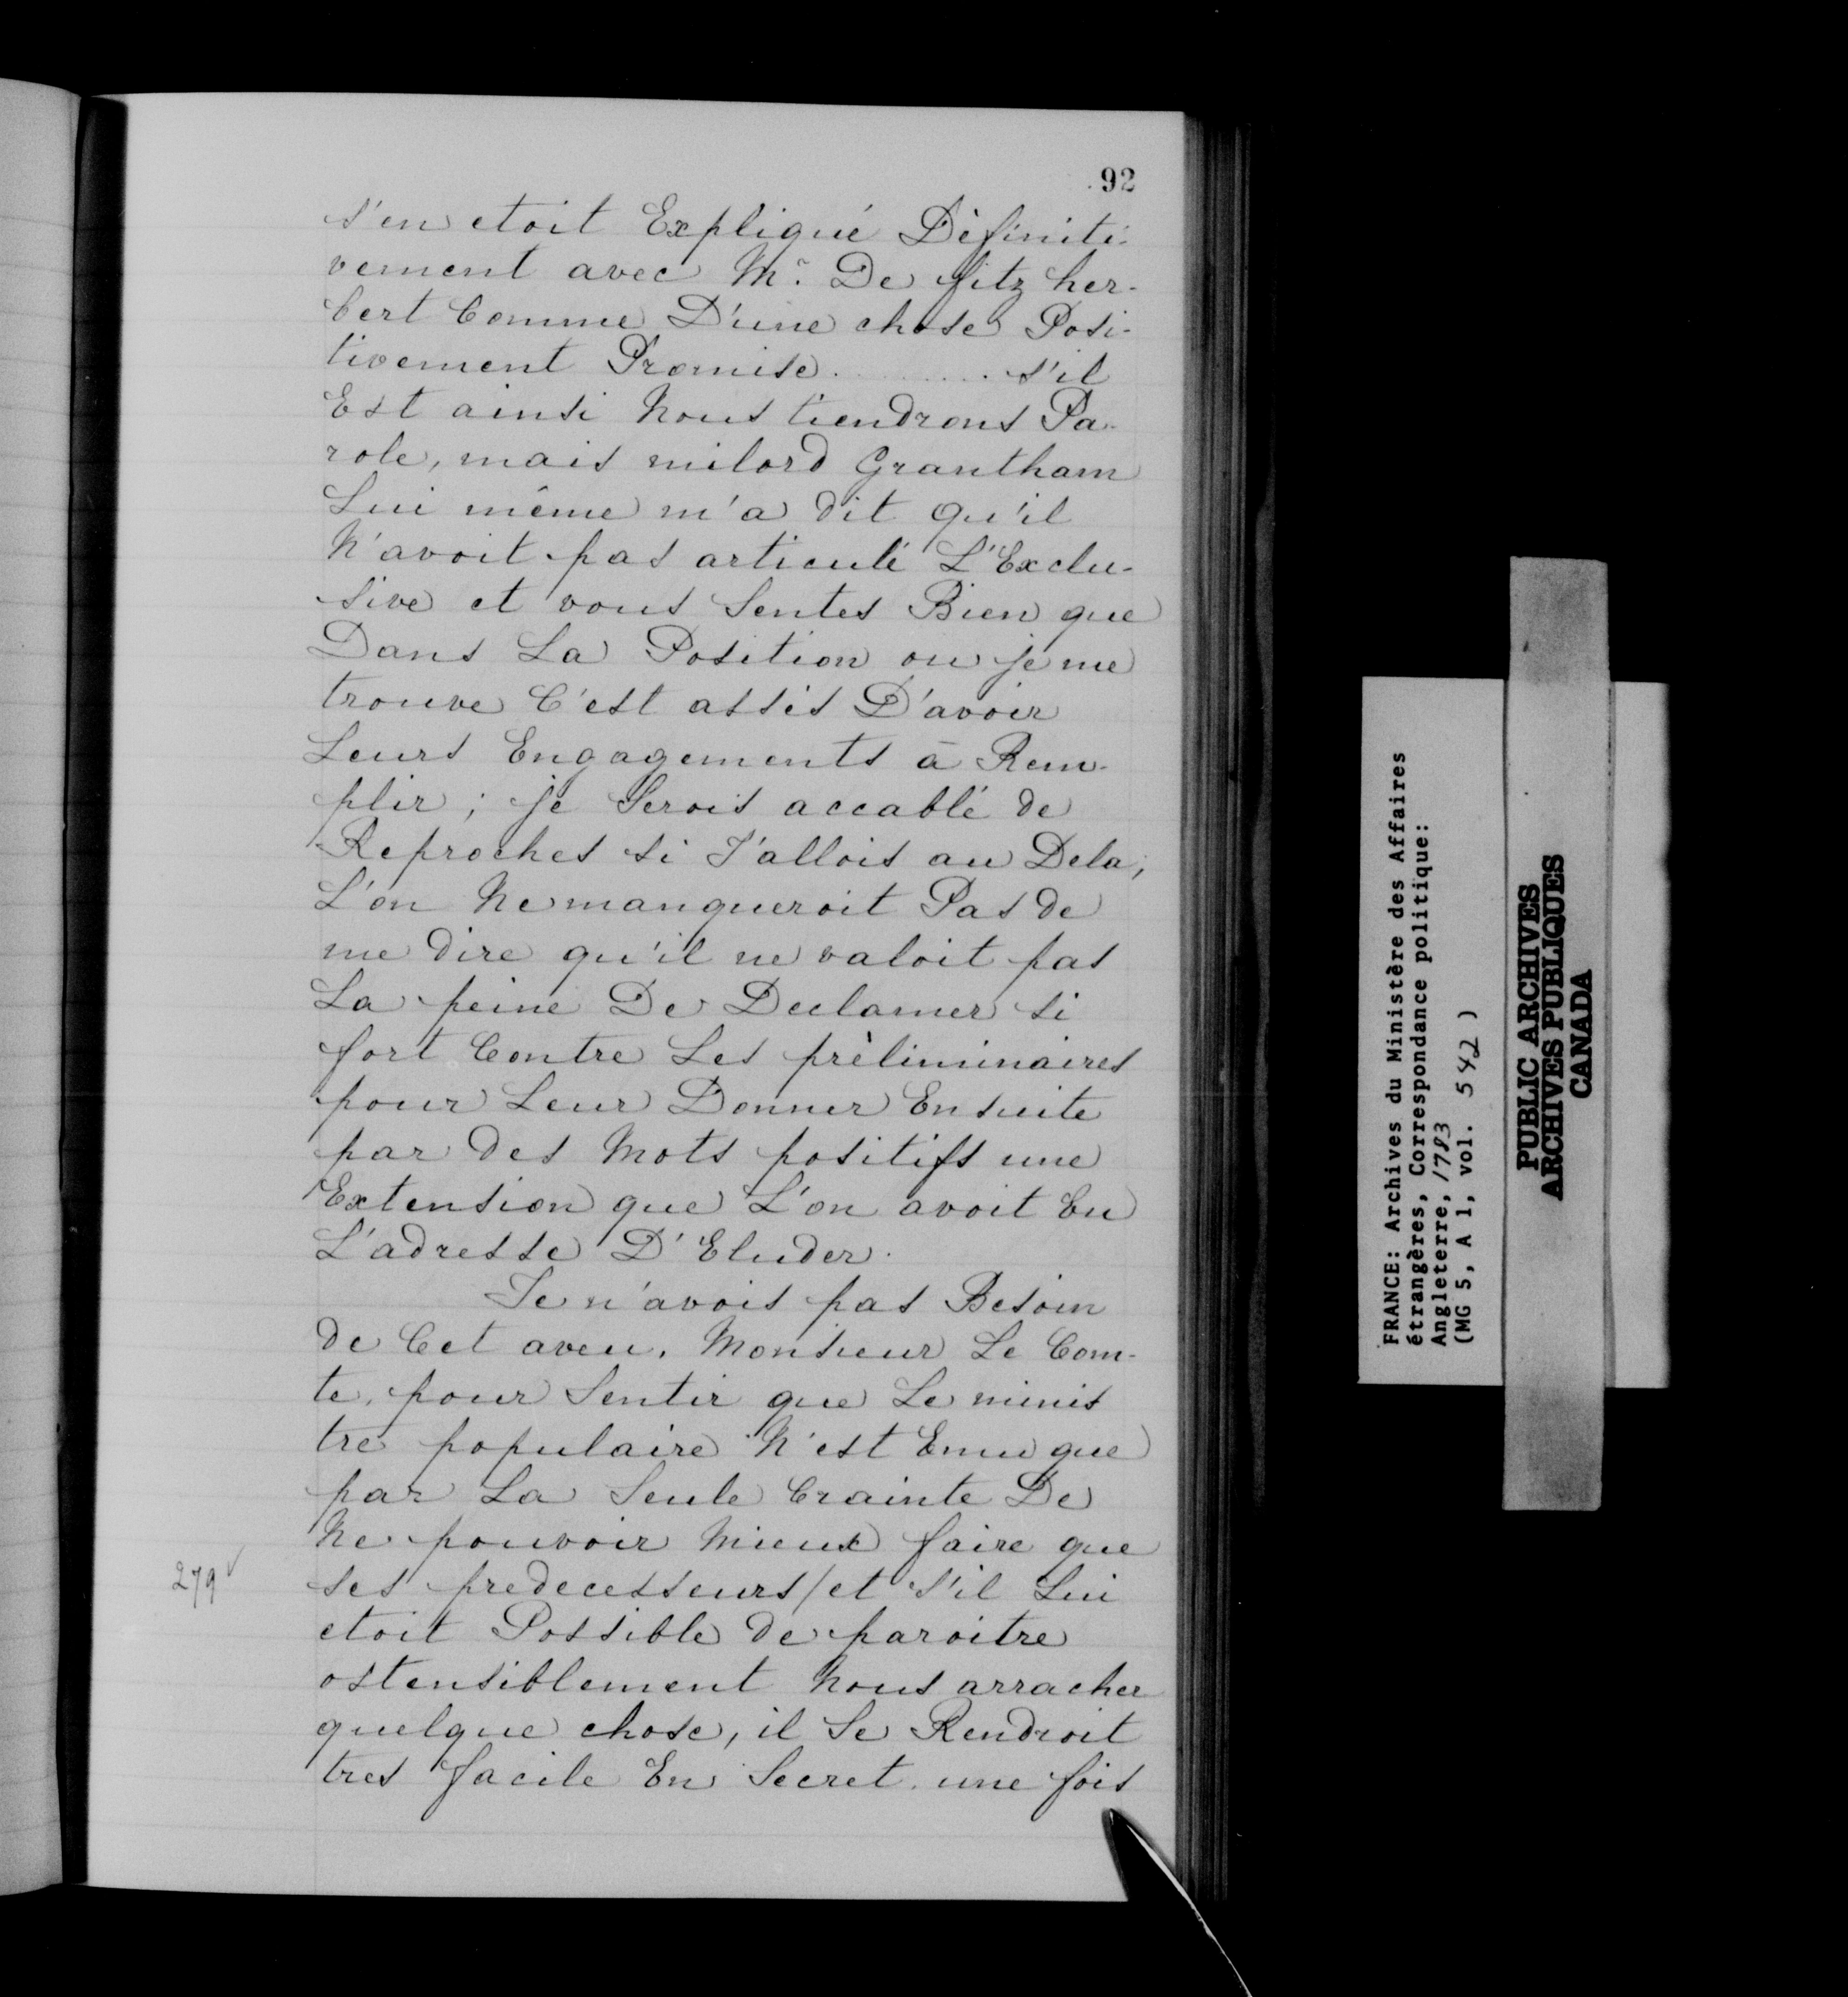 92
s'en etoit Expliqué Dèfiniti-
vement avec Mr. De fitz her-
bert Comme D'une chose Posi-
tivement Promise.......... s'il
Est ainsi Nous tiendrons Pa-
role, mais milord Grantham
Lui même m'a dit qu'il
N'avoit pas articulé L'Exclu-
sive et vous Sentes Bien que
Dans La Position ou je me
trouve C'est assés D'avoir
Leurs Engagements à Rem-
plir; je Serois accablé de
Reproches si J'allois au Dela;
L'on Ne manqueroit Pas de
me dire qu'il ne valoit pas
La peine De Declamer si
fort Contre Les prèliminaires
pour Leur Donner Ensuite
par des Mots positifs une
Extension que L'on avoit Eu
L'adresse D'Eluder.
Je n'avois pas Besoin
de Cet aveu, Monsieur Le Com-
te, pour Sentir que Le minis
tre populaire N'est Emu que
par La Seule Crainte De
Ne pouvoir Mieux faire que
279v
ses predecesseurs/et s'il Lui
etoit Possible de paroitre
ostensiblement Nous arracher
quelque chose, il Se Rendroit
tres facile En Secret. une fois
FRANCE: Archives du Ministère des Affaires
étrangères, Correspondance politique:
Angleterre, 1783
(MG 5, A 1, vol. 542 )
PUBLIC ARCHIVES
ARCHIVES PUBLIQUES
CANADA